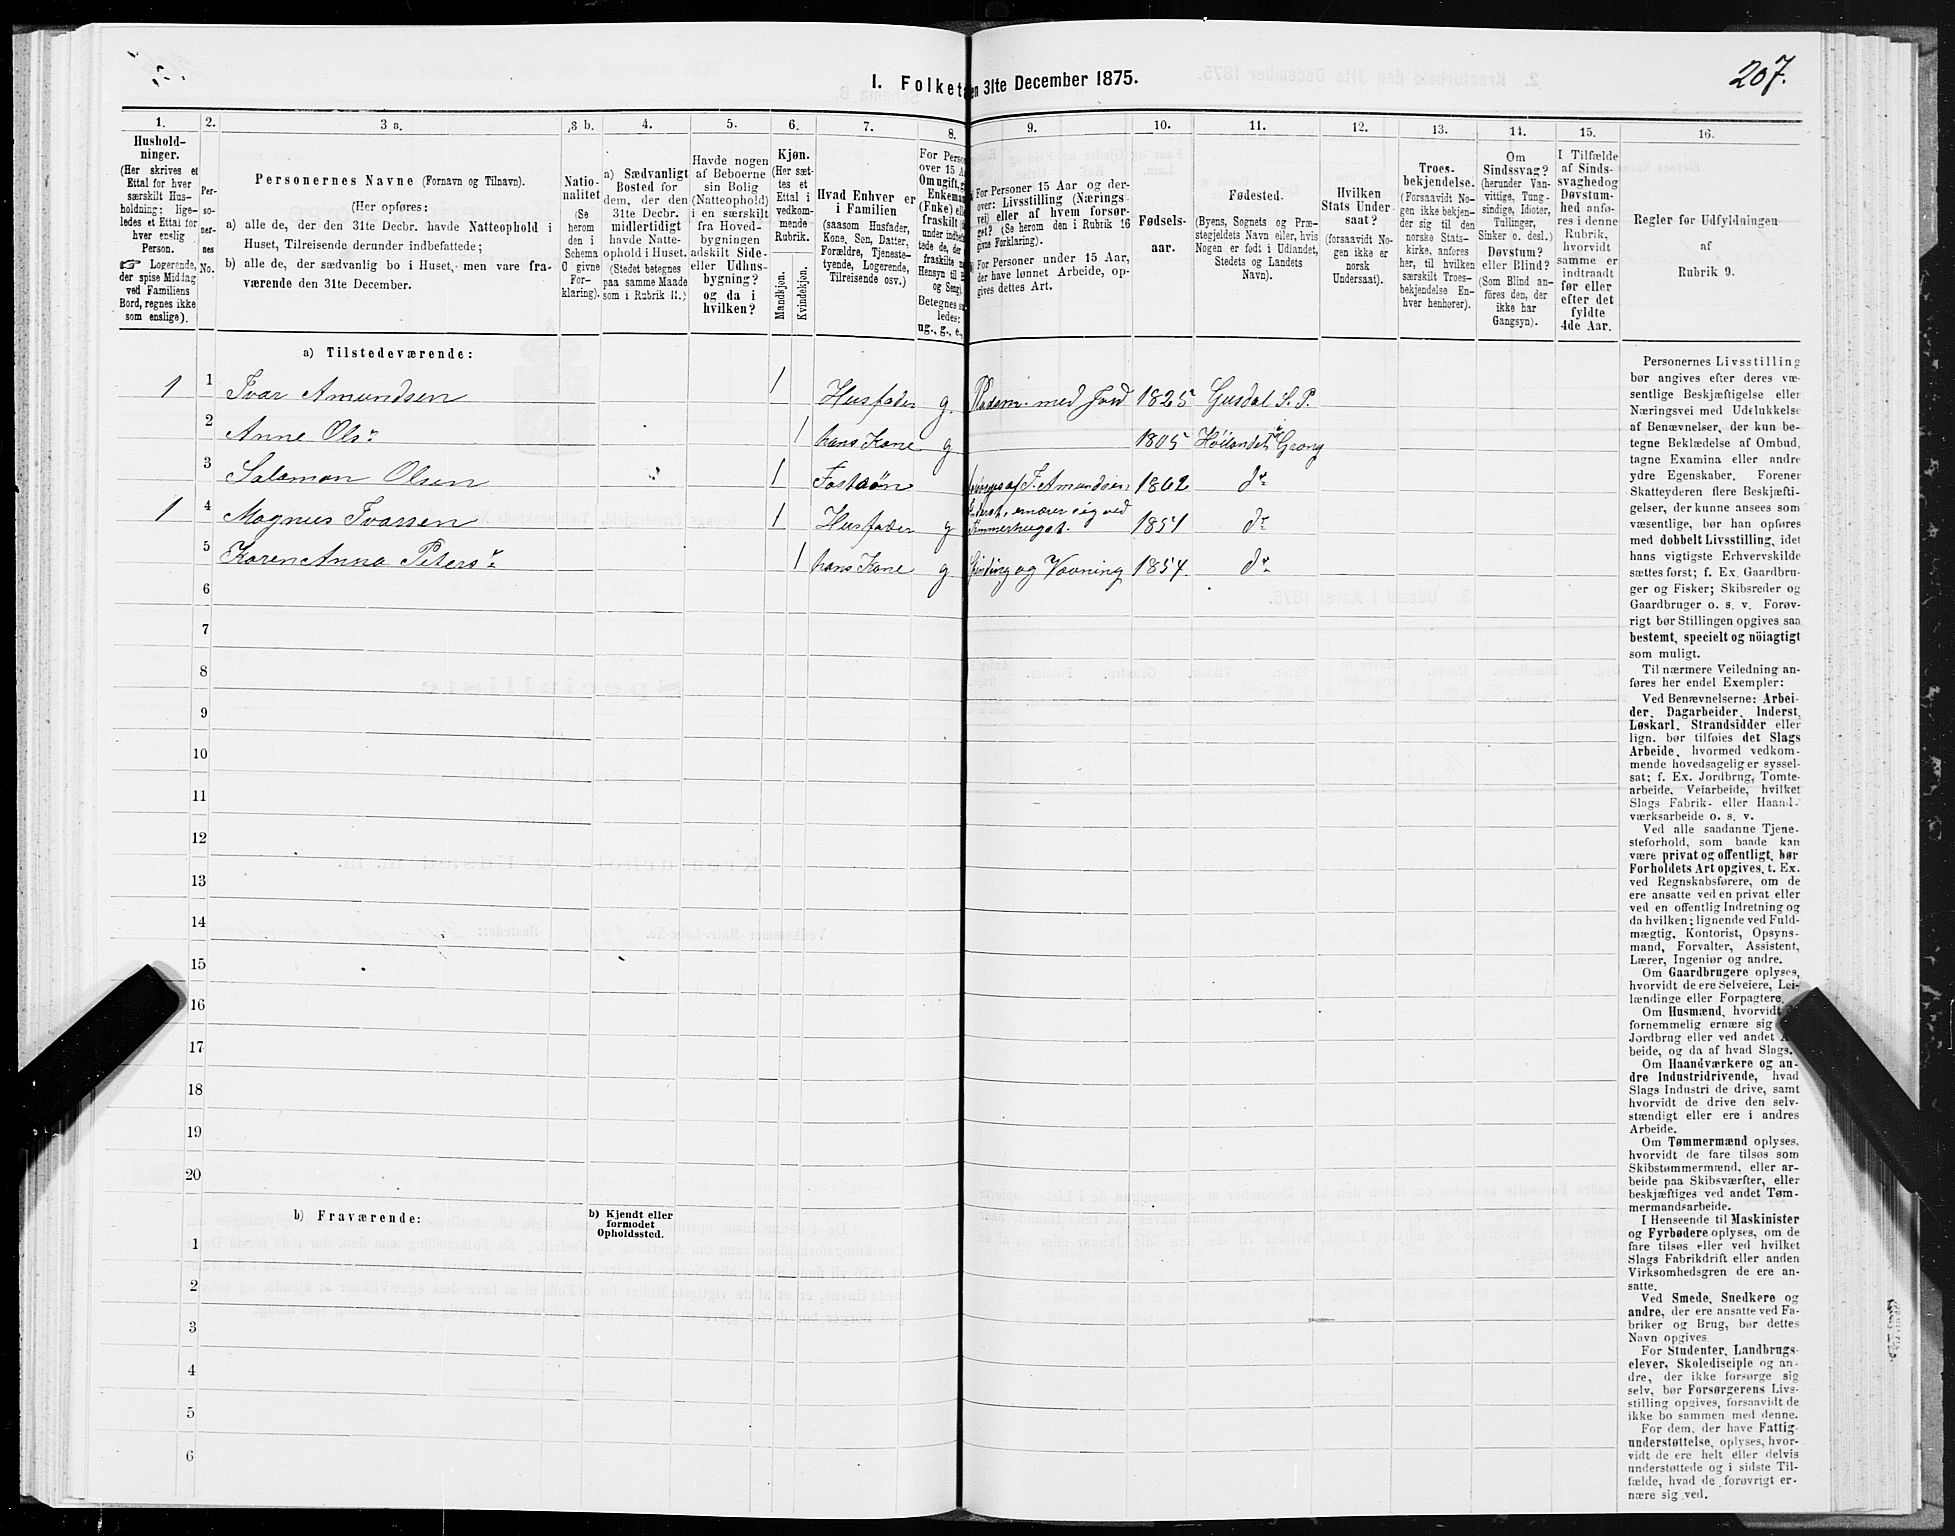 207.
I. Folket
en 31te December 1875.
1. 2. 3 a. 3 b. 4. 5. 6. 7. 8. 9. 10. 11. 12. 13. 14. 15. 16.
Hushold-
ninger.
(Her skrives et
Ettal for hver
særskilt Hus-
holdning; lige-
ledes et Ettal for
hver enslig
Person.
☞ Logerende,
der spise Middag
ved Familiens
Bord, regnes ikke
som enslige).
Per-
so-
ner-
nes
No.
Personernes Navne (Fornavn og Tilnavn).
(Her opføres:
a) alle de, der den 31te Decbr. havde Natteophold i
Huset, Tilreisende derunder indbefattede;
b) alle de, der sædvanlig bo i Huset, men vare fra-
værende den 31te December.
Natio-
nalitet
(Se
herom
den i
Schema
C givne
For-
klaring).
a) Sædvanligt
Bosted for
dem, der den
31te Decbr.
midlertidigt
havde Natte-
ophold i Huset.
(Stedet betegnes
paa samme Maade
som i Rubrik 11.)
Havde nogen
af Beboerne
sin Bolig
(Natteophold)
i en særskilt
fra Hoved-
bygningen
adskilt Side-
eller Udhus-
bygning?
og da i
hvilken?
Kjøn.
(Her sæt-
tes et
Ettal i
vedkom-
mende
Rubrik.
Mandkjøn.
Kvindekjøn.
Hvad Enhver er
i Familien
(saasom Husfader,
Kone, Søn, Datter,
Forældre, Tjeneste-
tyende, Logerende,
Tilreisende osv.)
For Person
over 15 A
Om ugift, g
Enkeman
(Fnke) elle
fraskilt
under indbe
tede de, de
fraskilte m
Hensyn til B
og Seng).
Betegnes sa
ledes:
ug., g., e.,
For Personer 15 Aar og der-
over: Livsstilling (Nærings-
vei) eller af hvem forsør-
get? (Se herom den i Rubrik 16
givne Førklaring).
For Personer under 15 Aar,
der have lønnet Arbeide, op-
gives dettes Art.
Fødsels-
aar.
Fødested.
(Byens, Sognets og Præ-
stegjeldets Navn eller, hvis
Nogen er født i Udlandet,
Stedets og Landets
Navn).
Hvilken
Stats Under-
saat?
(forsaavidt No-
gen ikke er
norsk
Undersaat).
Troes-
bekjendelse.
(Forsaavidt No-
gen ikke bekjen-
der sig til den
norske Stats-
kirke, anføres
her, til hvilken
særskilt Troes-
bekjendelse En-
hver henhører).
Om
Sindssvag?
(herunder Van-
vittige, Tung-
sindige, Idioter,
Tullinger,
Sinker o. desl.)
Døvstum?
eller Blind?
(Som Blind an-
føres den, der
ikke har
Gangsyn).
I Tilfælde
af Sinds-
svaghed og
Døvstum-
hed anfø-
res i denne
Rubrik,
hvorvidt
samme er
indtraadt
før eller
efter det
fyldte
4de Aar.
Regler for Udfyldningen
af
Rubrik 9.
a) Tilstedeværende:
1 1 Ivar Amundsen 1 Husfader g. Pladsm. med Jord 1825 Gusdal S. P.
2 Anne Olsr 1 hans Kone g 1805 Høilandet Grong
3 Salamon Olsen 1 Fostsøn forsørges af I. Amundsen 1862 do
1 4 Magnus Ivarsen 1 Husfader g Inderst, ernærer sig ved Tømmerhugst. 1851 do
5 Karen Anna Petersr 1 hans Kone g Spinding og Vævning 1854 do
6
7
8
9
10
11
12
13
14
15
16
17
18
19
20
b) Fraværende:
b) Kjendt eller
formodet
Opholdssted.
1
2
3
4
5
6
Personernes Livsstilling
bør angives efter deres væ-
sentlige Beskjæftigelse eller
Næringsvei med Udelukkelse
af Benævnelser, der kun be-
tegne Beklædelse af Ombud,
tagne Examina eller andre
ydre Egenskaber. Forener
Skatteyderen flere Beskjæfti-
gelser, der kunne ansees som
væsentlige, bør han opføres
med dobbelt Livsstilling, idet
hans vigtigste Erhvervskilde
sættes først; f. Ex. Gaardbru-
ger og Fisker; Skibsreder og
Gaardbruger o. s. v. Forøv-
rigt bør Stillingen opgives saa
bestemt, specielt og nöiagtigt
som muligt.
Til nærmere Veiledning an-
føres her endel Exempler:
Ved Benævnelserne: Arbei-
der, Dagarbeider, Inderst,
Løskarl, Strandsidder eller
lign. bør tilføies det Slags
Arbeide, hvormed vedkom-
mende hovedsagelig er syssel-
sat; f. Ex. Jordbrug, Tomte-
arbeide, Veiarbeide, hvilket
Slags Fabrik- eller Haand-
værksarbeide o. s. v.
Ved alle saadanne Tjene-
steforhold, som baade kan
være privat og offentligt, bør
Forholdets Art opgives, t. Ex.
ved Regnskabsførere, om de
ere ansatte ved en privat eller
ved en offentlig Indretning og
da hvilken; lignende ved Fuld-
mægtig, Kontorist, Opsyns-
mand, Forvalter, Assistent,
Lærer, Ingeniør og andre.
Om Gaardbrugere oplyses,
hvorvidt de ere Selveiere, Lei-
lændinge eller Forpagtere.
Om Husmænd, hvorvidt
fornemmelig ernære sig
Jordbrug eller ved andet A
beide, og da af hvad Slags.
Om Haandværkere og an-
dre Industridrivende, hvad
Slags Industri de drive, samt
hvorvidt de drive den selv-
stændigt eller ere i andres
Arbeide.
Om Tømmermænd oplyses,
hvorvidt de fare tilsøs som
Skibstømmermænd, eller ar-
beide paa Skibsværfter, eller
beskjæftiges ved andet Tøm-
mermandsarbeide.
I Henseende til Maskinister
og Fyrbødere oplyses, om de
fare tilsøs eller ved hvilket
Slags Fabrikdrift eller anden
Virksomhedsgren de ere an-
satte.
Ved Smede, Snedkere og
andre, der ere ansatte ved Fa-
briker og Brug, bør dettes
Navn opgives
For Studenter, Landbrugs-
elever, Skoledisciple og an-
dre, der ikke forsørge sig
selv, bør Forsørgerens Livs-
stilling opgives, forsaavidt de
ikke bo sammen med denne.
For dem, der have Fattig-
understøttelse, oplyses, hvor-
vidt de ere helt eller delvis
understøttede og i sidste Til-
fælde, hvad de forøvrigt er-
nære sig ved.